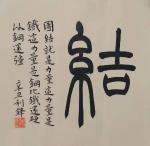 結
團結就是力量這力量是
鐵這力量是鋼比鐵還硬
比鋼還強